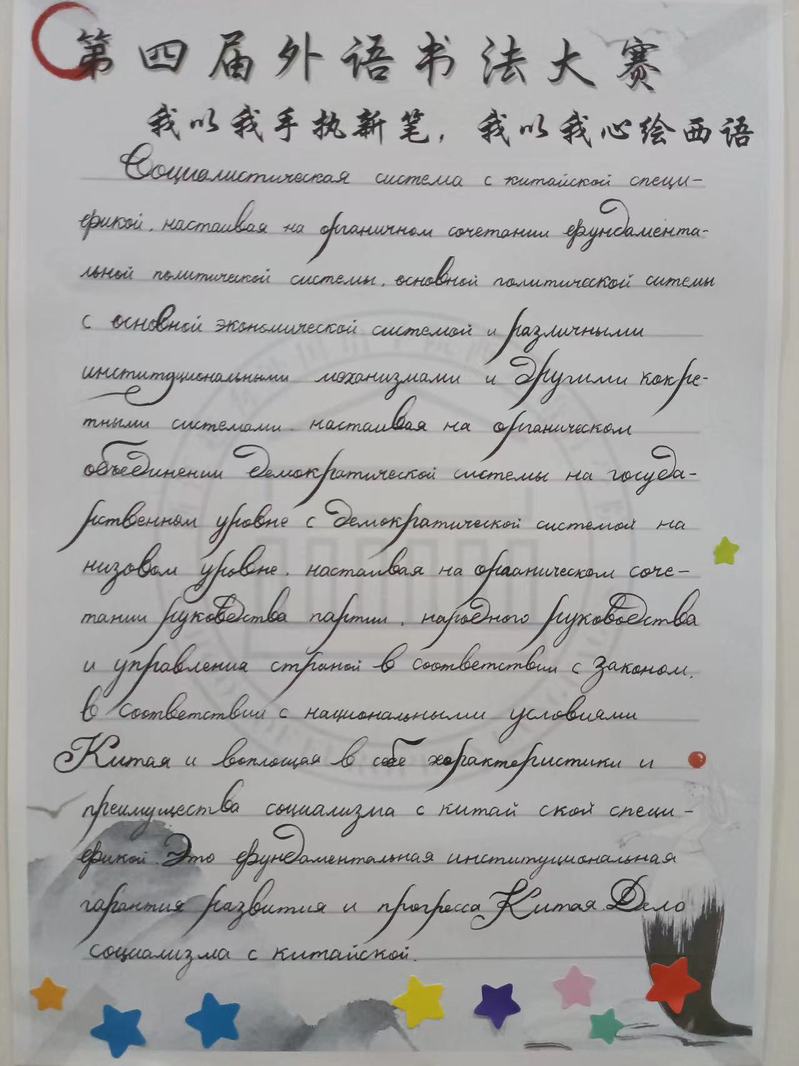 第四届外语书法大赛
我以我手执新笔，我以我心绘西语
Социалистическая система с китайской специ-
фикой, настаивая на органичном сочетании фундамента-
льной политической системы, основной политической ситемы
с основной экономической системой и различными
институциональными механизмами и другими кокре-
тными системами, настаивая на органическом
объединении демократической системы на госуда-
рственном уровне с демократической системой на
низовом уровне, настаивая на органическом соче-
тании руководства партии, народного руководства
и управления страной в соответствии с законом,
в соответствии с национальными условиями
Китая и воплощая в себе характеристики и
преимущества социализма с китай ской специ-
фикой. Это фундаментальная институциональная
гарантия развития и прогресса Китая. Дело
социализма с китайской.